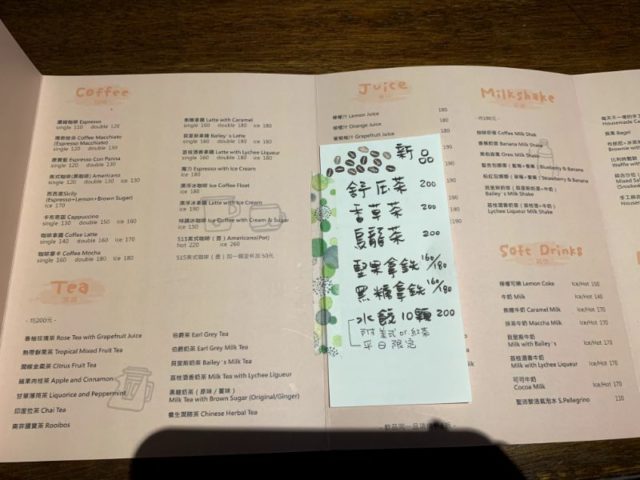 Coffee
濃縮咖啡 Espresso
single 110 double 120
瑪奇朵 Coffee Macchiato
(Espresso Macchiato)
single 120 double 130
康寶藍 Espresso Con Panna
single 120 double 130
美式咖啡(黑咖啡) Americano
single 130 double 150 ice 150
西西里Sicily
(Espresso+Lemon+Brown Sugar)
ice 170
卡布奇諾 Cappuccino
single 130 double 150
咖啡拿鐵 Coffee Latte
single 140 double 160 ice 170
咖啡摩卡 Coffee Mocha
single 160 double 180 ice 180
焦糖拿鐵 Latte with Caramel
single 160 double 180 ice 180
貝里斯拿鐵 Latte with Bailey's
single 160 double 180 ice 180
荔枝酒香拿鐵 Latte with Lychee Liqueur
single 160 double 180 ice 180
魔力 Espresso with Ice Cream
ice 180
漂浮冰咖啡 Ice Coffee Float
ice 180
漂浮冰拿鐵 Latte with Ice Cream
ice 190
Ice Coffee with Cream & Sugar
ice 150
515美式咖啡(壺) Americano(Pot)
hot 220 ice 260
515美式咖啡(壺)加一個蛋杯加 50元
Tea
- 均200元 -
香柚玫瑰茶 Rose Tea with Grapefruit Juice
熱帶鮮果茶 Tropical Mixed Fruit Tea
潤喉金桔茶 Citrus Fruit Tea
蘋果肉桂茶 Apple and Cinnamon
甘草薄荷茶 Liquorice and Peppermint
印度拉茶 Chai Tea
南非國寶茶 Rooibos
伯爵茶 Earl Grey Tea
伯爵奶茶 Earl Grey Milk Tea
貝里斯奶茶 Bailey's Milk Tea
荔枝酒香奶茶 Milk Tea with Lychee Liqueur
黑糖奶茶(原味/薑味)
Milk Tea with Brown Sugar (Original/Ginger)
養生潤顏茶 Chinese Herbal Tea
Juice
檸檬汁 Lemon Juice 180
柳橙汁 Orange Juice 180
葡萄柚汁 Grapefruit Juice 180
新品
舒压茶 200
香草茶 200
烏龍茶 200
堅果拿鉄 160/180
黑糖拿鉄 160/180
水餃 10顆 200
附美式or紅茶
平日限定
Milkshake
- 均190元 -
咖啡奶昔 Coffee Milk Shak
香蕉奶昔 Banana Milk Shake
Oreo Milk Shake
Blueberry & Banana
Strawberry & Banana
Bailey's Milk Shake
Lychee Liqueur Milk Shake
Soft Drinks
檸檬可樂 Lemon Coke Ice/Hot 150
牛奶 Milk Ice/Hot 140
焦糖牛奶 Caramel Milk Ice/Hot 150
抹茶牛奶 Matcha Milk Ice/Hot 150
貝里斯牛奶
Milk with Bailey's Ice/Hot 170
荔枝酒香牛奶
Milk with Lychee Liqueur Ice/Hot 170
可可牛奶
Cocoa Milk Ice/Hot 170
S.Pellegrino 110